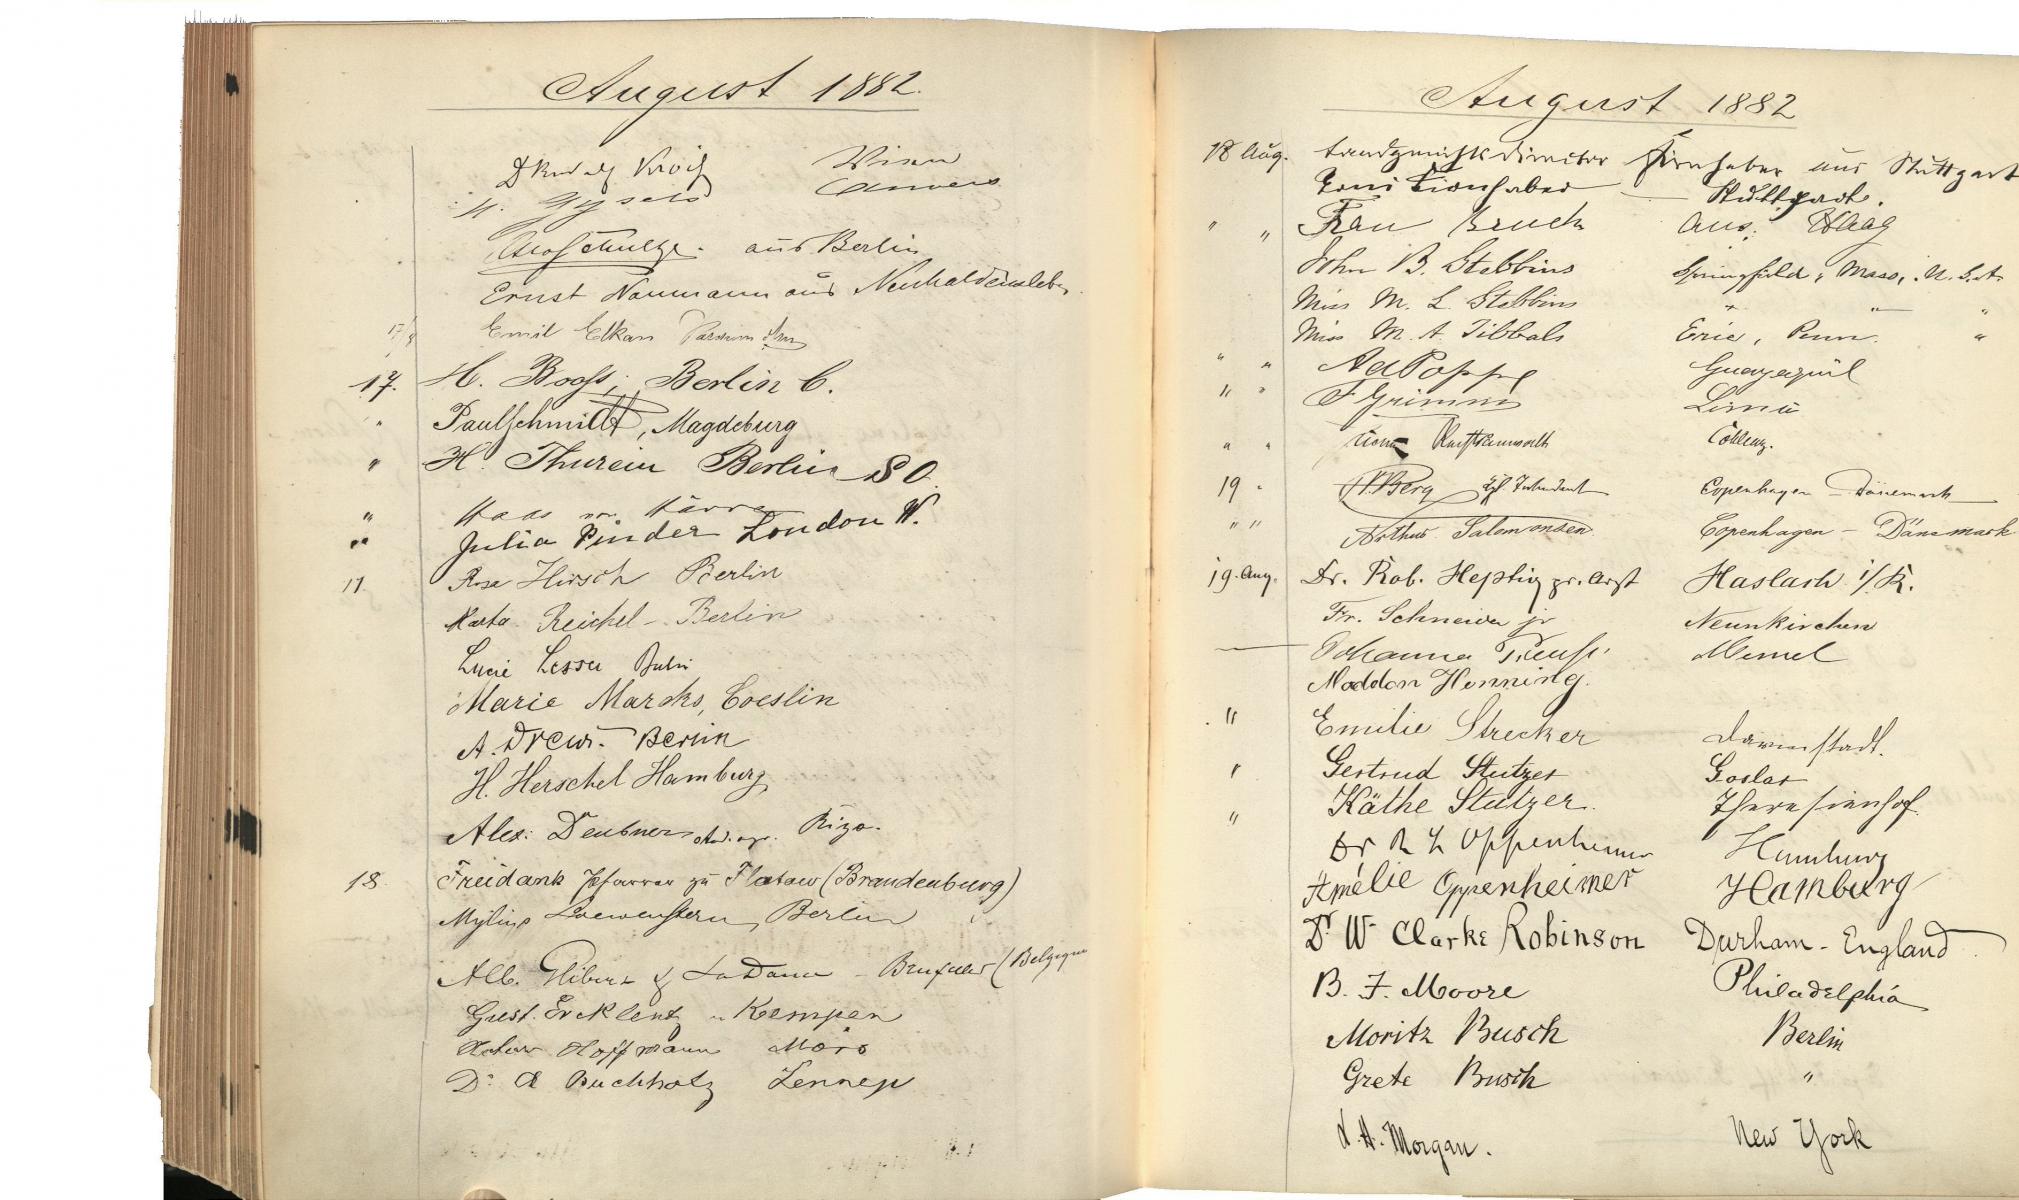 August 1882.
Wien
Gysels Anvers
aus Berlin
Ernst Naumann aus Neuhaldensleben
17/8 Emil Elkan
17. H. Booss, Berlin C.
" Paul Schmidt, Magdeburg
" H. Thurein Berlin SO.
" Haas
" Julia Pinder London W.
17. Rosa Hirsch Berlin
Marta Reichel - Berlin
Lucie Lesser Berlin
Marie Marcks, Coeslin
A. Drews. Berlin
H. Herschel Hamburg
Alex: Deubner Riga.
18. Freidank Pfarrer zu Flatow (Brandenburg)
Mylius Loewenstern, Berlin
Alb. Glibert & sa Dame - Bruxelles (Belgique
Gust. Ercklentz Kempen
Hoffmann Mörs
Dr A Buchholtz Lennep
August 1882
18 Aug. Landgerichtsdirector Firnhaber aus Stuttgart
Firnhaber Stuttgart.
" " Frau Bruck aus Haag
John B. Stebbins Springfield, Mass, U.S.A.
Miss M. L. Stebbins " " "
Miss M. A. Tibbals Erie, Penn. "
" " Ad Poppe Guayaquil
" " F Grimm Lima
" " Rechtsanwalt Coblenz.
19 " Berg Copenhagen - Dänemark
" " Arthur Salomonsen Copenhagen - Dänemark
19. Aug. Dr. Rob. Heptig pr. Arzt Haslach i/K.
Fr. Schneider jr Neunkirchen
Johanna Preuss. Memel
Henning.
" Emilie Strecker Darmstadt.
" Gertrud Stutzer Goslar
" Käthe Stutzer. Theresienhof.
Dr Oppenheimer Hamburg
Amélie Oppenheimer Hamburg
Dr W Clarke Robinson Durham - England
B. F. Moore Philadelphia
Moritz Busch Berlin
Grete Busch "
Morgan. New York